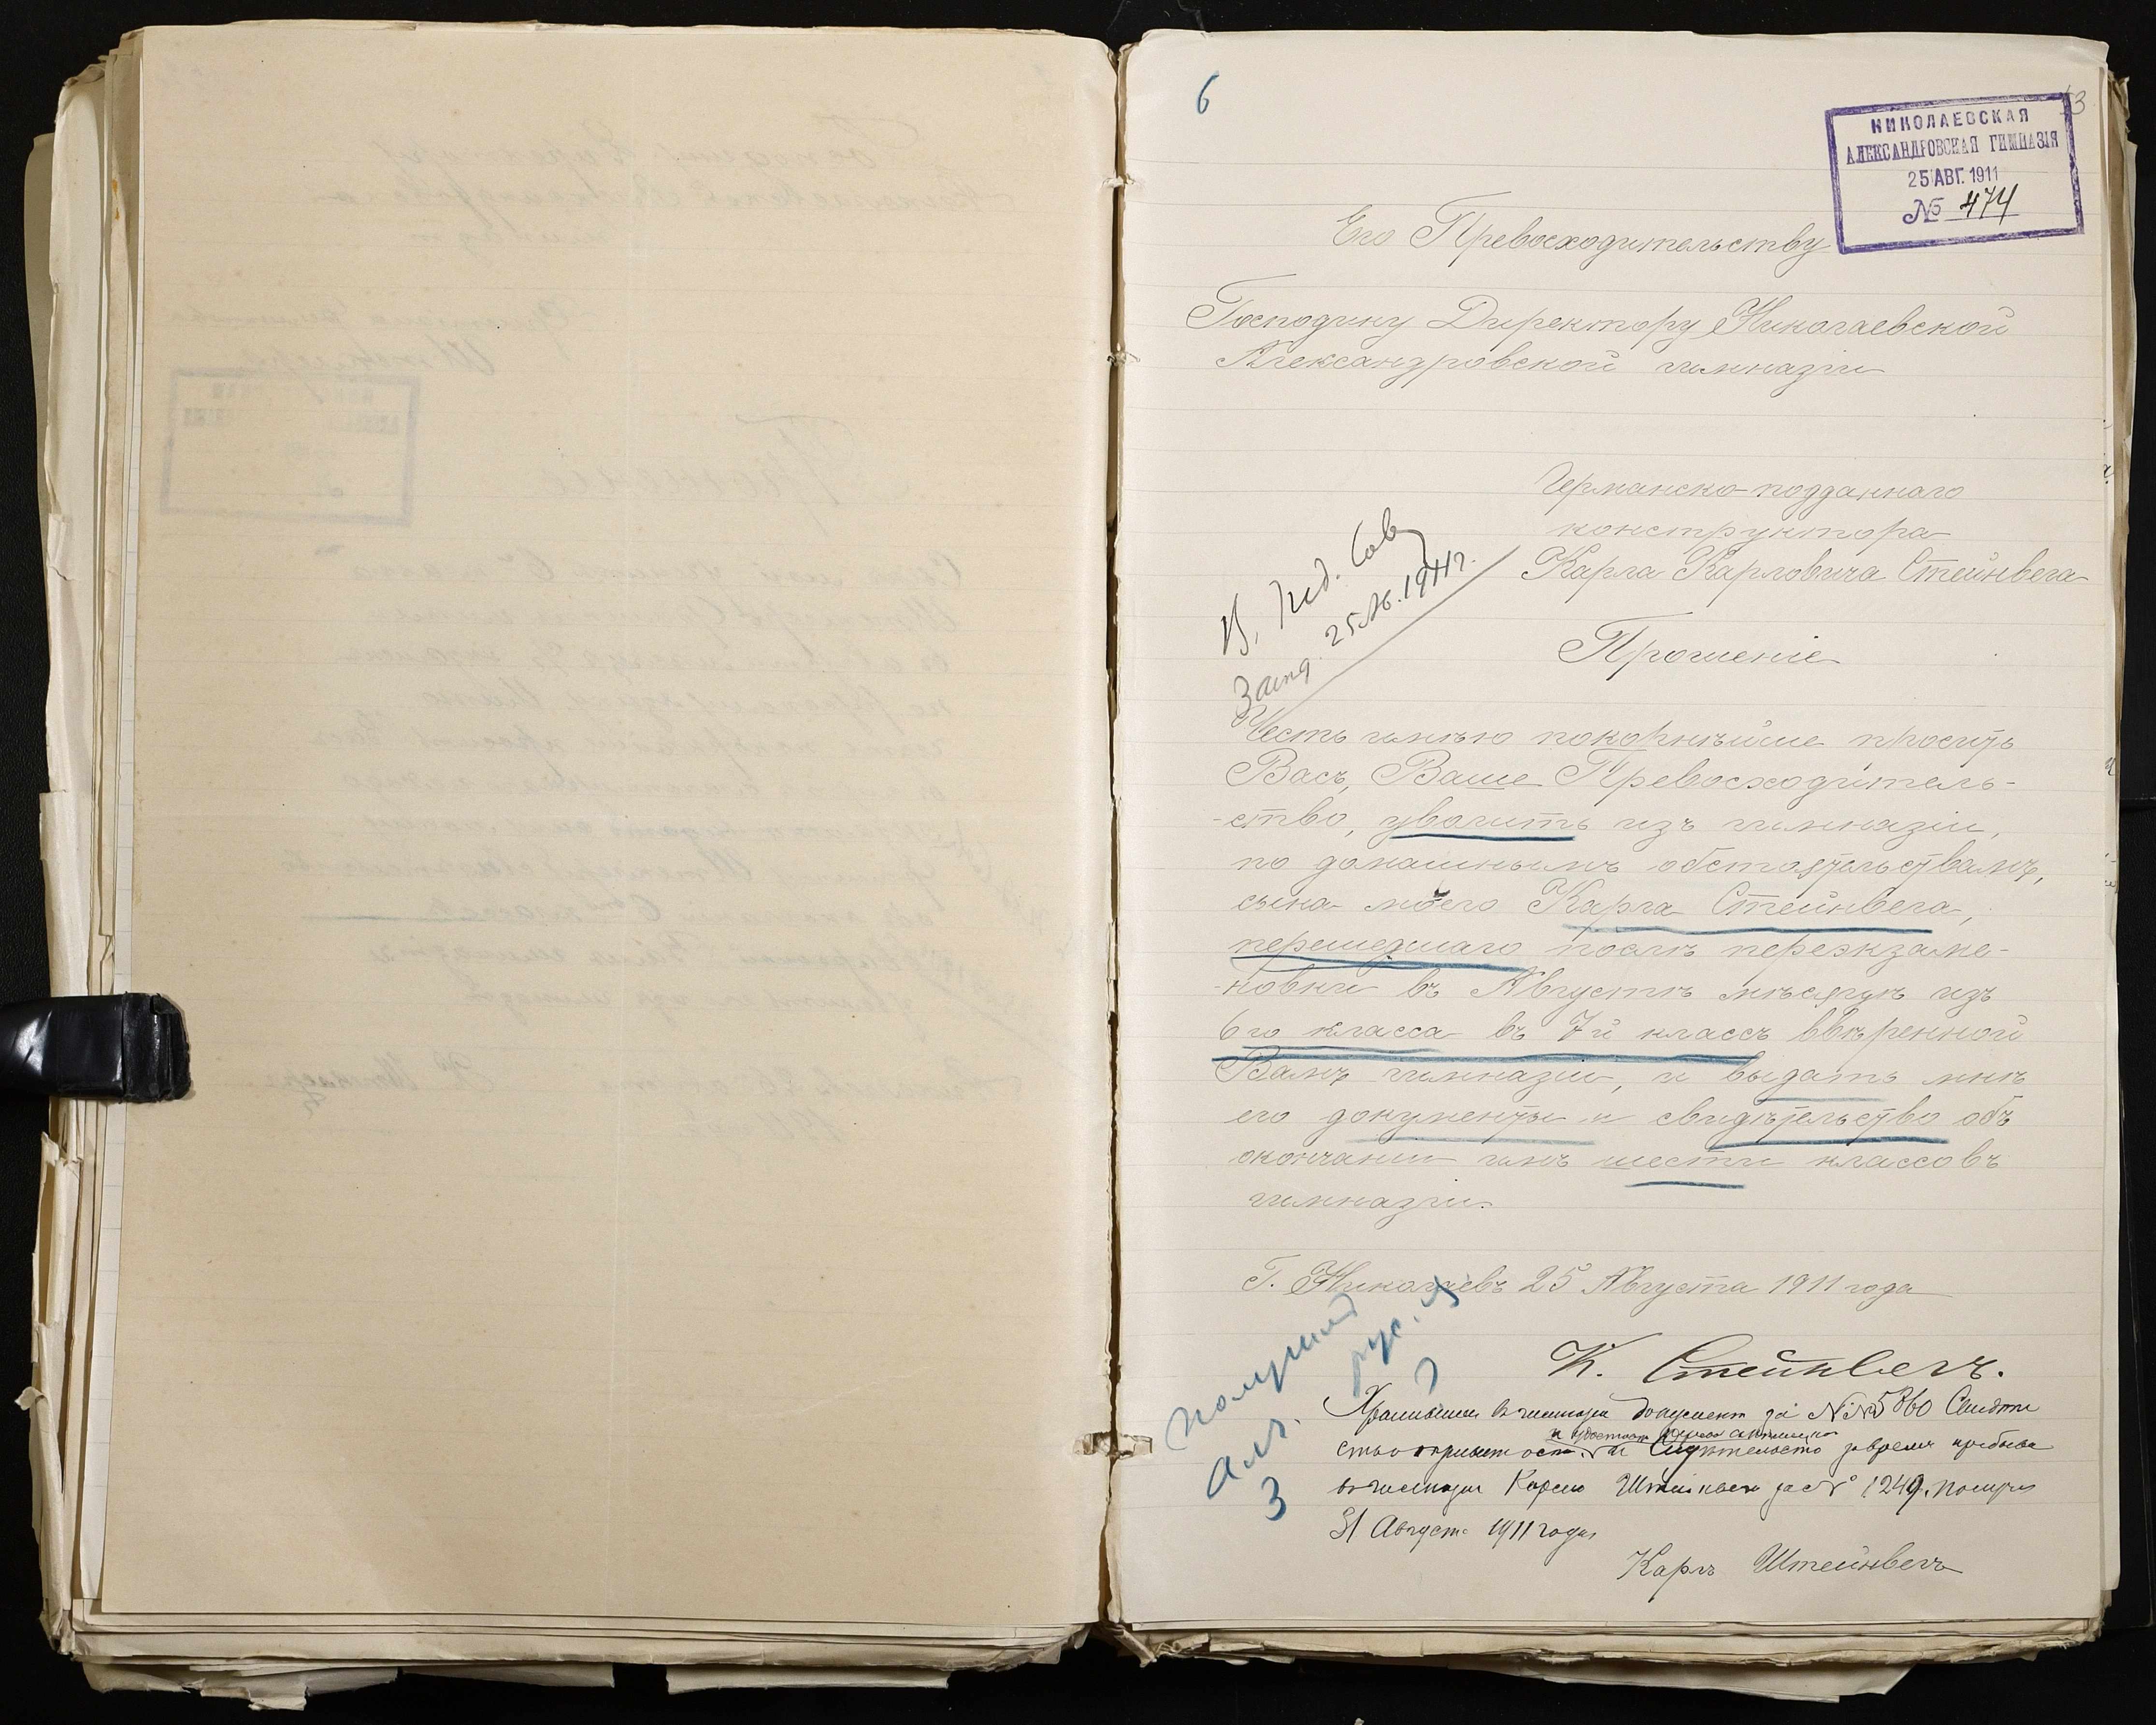 6
НИКОЛАЕВСКАЯ
АЛЕКСАНДРОВСКАЯ ГИМНАЗІЯ
25 АВГ. 1911
№ 474
Его Превосходительству
Господину Директору Николаевской
Александровской гимназіи
Германско-подданнаго
конструктора
Карла Карловича Стейнвега
В. Пед. Сов
Засѣд. 25 Авг. 1911 г.
Прошеніе
Честь имѣю покорнѣйше просить
Васъ, Ваше Превосходитель-
-ство, уволить изъ гимназіи,
по домашнымъ обстоятельствамъ,
сына моего Карла Стейнвега,
перешедшаго послѣ переэкзаме-
-новки въ Августѣ мѣсяцѣ изъ
6го класса въ 7й классъ ввѣренной
Вамъ гимназіи, и выдать мнѣ
его документы и свидѣтельство объ
окончании имъ шести классовъ
гимназіи.
Г. Николаевъ 25 Августа 1911 года
К. Стейнвегъ.
получилъ
рус. яз
алг. 3
документ за
за время
за № 1249.
31 Август 1911 года
Карлъ Штейнвегъ